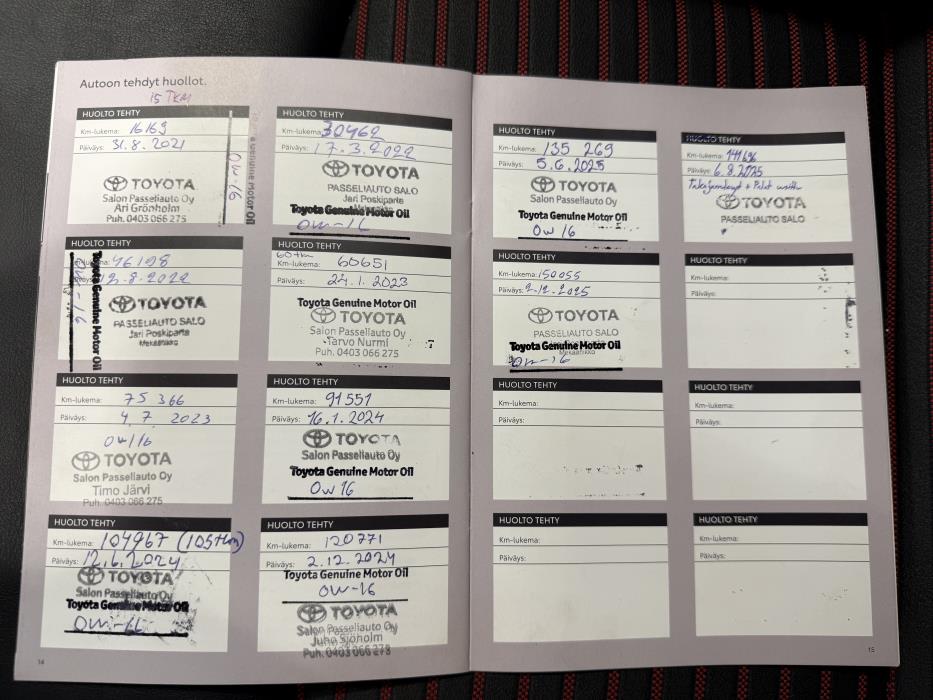 Autoon tehdyt huollot.
15 TKM
HUOLTO TEHTY
Km-lukema: 16169
Päiväys: 31.8.2021
TOYOTA
Salon Passeliauto Oy
Ari Grönholm
Puh. 0403 066 275
Genuine Motor Oil
0W-16
HUOLTO TEHTY
Km-lukema: 30462
Päiväys: 17.3.2022
TOYOTA
PASSELIAUTO SALO
Jari Poskiparta
Mekaanikko
Toyota Genuine Motor Oil
0W-16
HUOLTO TEHTY
46198
12.8.2022
TOYOTA
PASSELIAUTO SALO
Jari Poskiparta
Mekaanikko
Toyota Genuine Motor Oil
0W-16
HUOLTO TEHTY
60tkm
Km-lukema: 60651
Päiväys: 24.1.2023
Toyota Genuine Motor Oil
TOYOTA
Salon Passeliauto Oy
Tarvo Nurmi
Puh. 0403 066 275
HUOLTO TEHTY
Km-lukema: 75 366
Päiväys: 4.7 2023
0W/16
TOYOTA
Salon Passeliauto Oy
Timo Järvi
Puh. 0403 066 275
HUOLTO TEHTY
Km-lukema: 91551
Päiväys: 16.1.2024
TOYOTA
Salon Passeliauto Oy
Toyota Genuine Motor Oil
0W16
HUOLTO TEHTY
Km-lukema: 104967 (105tkm)
Päiväys: 12.6.2024
TOYOTA
Salon Passeliauto Oy
Toyota Genuine Motor Oil
0W-16
HUOLTO TEHTY
Km-lukema: 120771
Päiväys: 2.12.2024
Toyota Genuine Motor Oil
0W-16
TOYOTA
Salon Passeliauto Oy
Juho Sjöholm
Puh. 0403 066 278
14
HUOLTO TEHTY
Km-lukema: 135 269
Päiväys: 5.6.2025
TOYOTA
Salon Passeliauto Oy
Toyota Genuine Motor Oil
0W16
HUOLTO TEHTY
Km-lukema: 141696
Päiväys: 6.8.2025
TOYOTA
PASSELIAUTO SALO
HUOLTO TEHTY
Km-lukema: 150055
Päiväys: 2.12.2025
TOYOTA
PASSELIAUTO SALO
Mekaanikko
Toyota Genuine Motor Oil
0W-16
HUOLTO TEHTY
Km-lukema:
Päiväys:
HUOLTO TEHTY
Km-lukema:
Päiväys:
HUOLTO TEHTY
Km-lukema:
Päiväys:
HUOLTO TEHTY
Km-lukema:
Päiväys:
HUOLTO TEHTY
Km-lukema:
Päiväys:
15